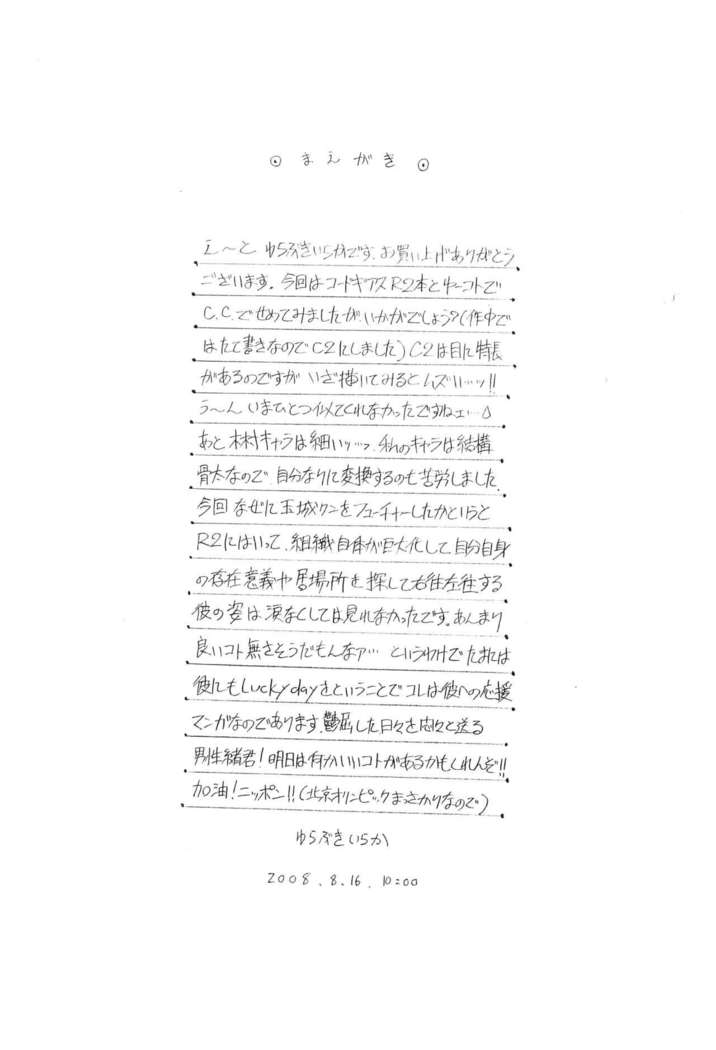 ◉ まえがき ◉
え〜と ゆらぶきいらかです。お買い上げありがとう
ございます。今回はコードギアスR2本とゆーコトで
C.C.でせめてみましたが、いかがでしょう?(作中で
はたて書きなのでC2にしました)C2は目に特長
があるのですが いざ描いてみるとムズいッ…ッ!!
う〜ん いまひとつ似てくれなかったですねェ…
あと 木村キャラは細いッ…っ 私のキャラは結構
骨太なので、自分なりに変換するのも苦労しました。
今回 なぜに玉城クンをフューチャーしたかというと
R2にはいって、組織自体が巨大化して、自分自身
の存在意義や居場所を探して右往左往する
彼の姿は涙なくしては見れなかったです。あんまり
良いコト無さそうだもんなァ… というわけでたまには
彼にもLucky dayをということでコレは彼への応援
マンガなのであります。鬱屈した日々を悶々と送る
男性緒君!明日は何かいいコトがあるかもしれんぞ!!
加油!ニッポン!!(北京オリンピックまっさかりなので)
ゆらぶきいらか
2008.8.16.10:00